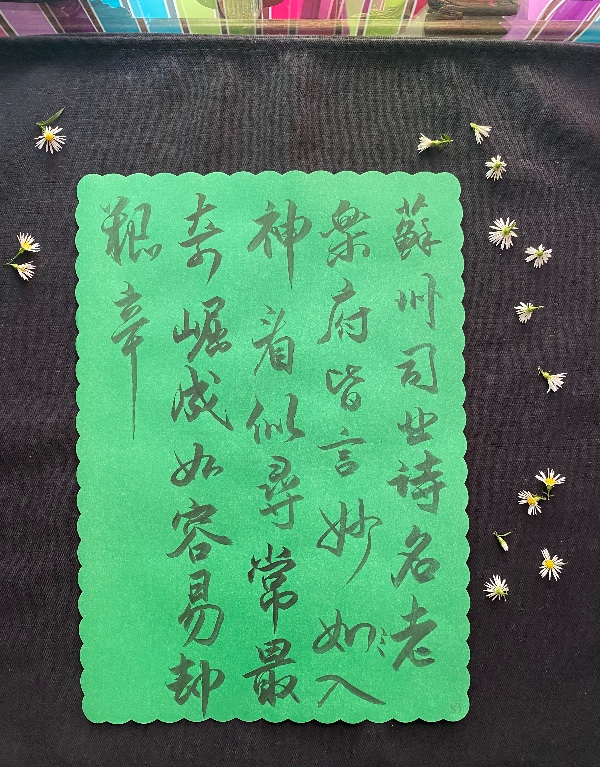 蘇州司业诗名老
樂府皆言妙如入
神看似尋常最
奇崛成如容易却
艱辛